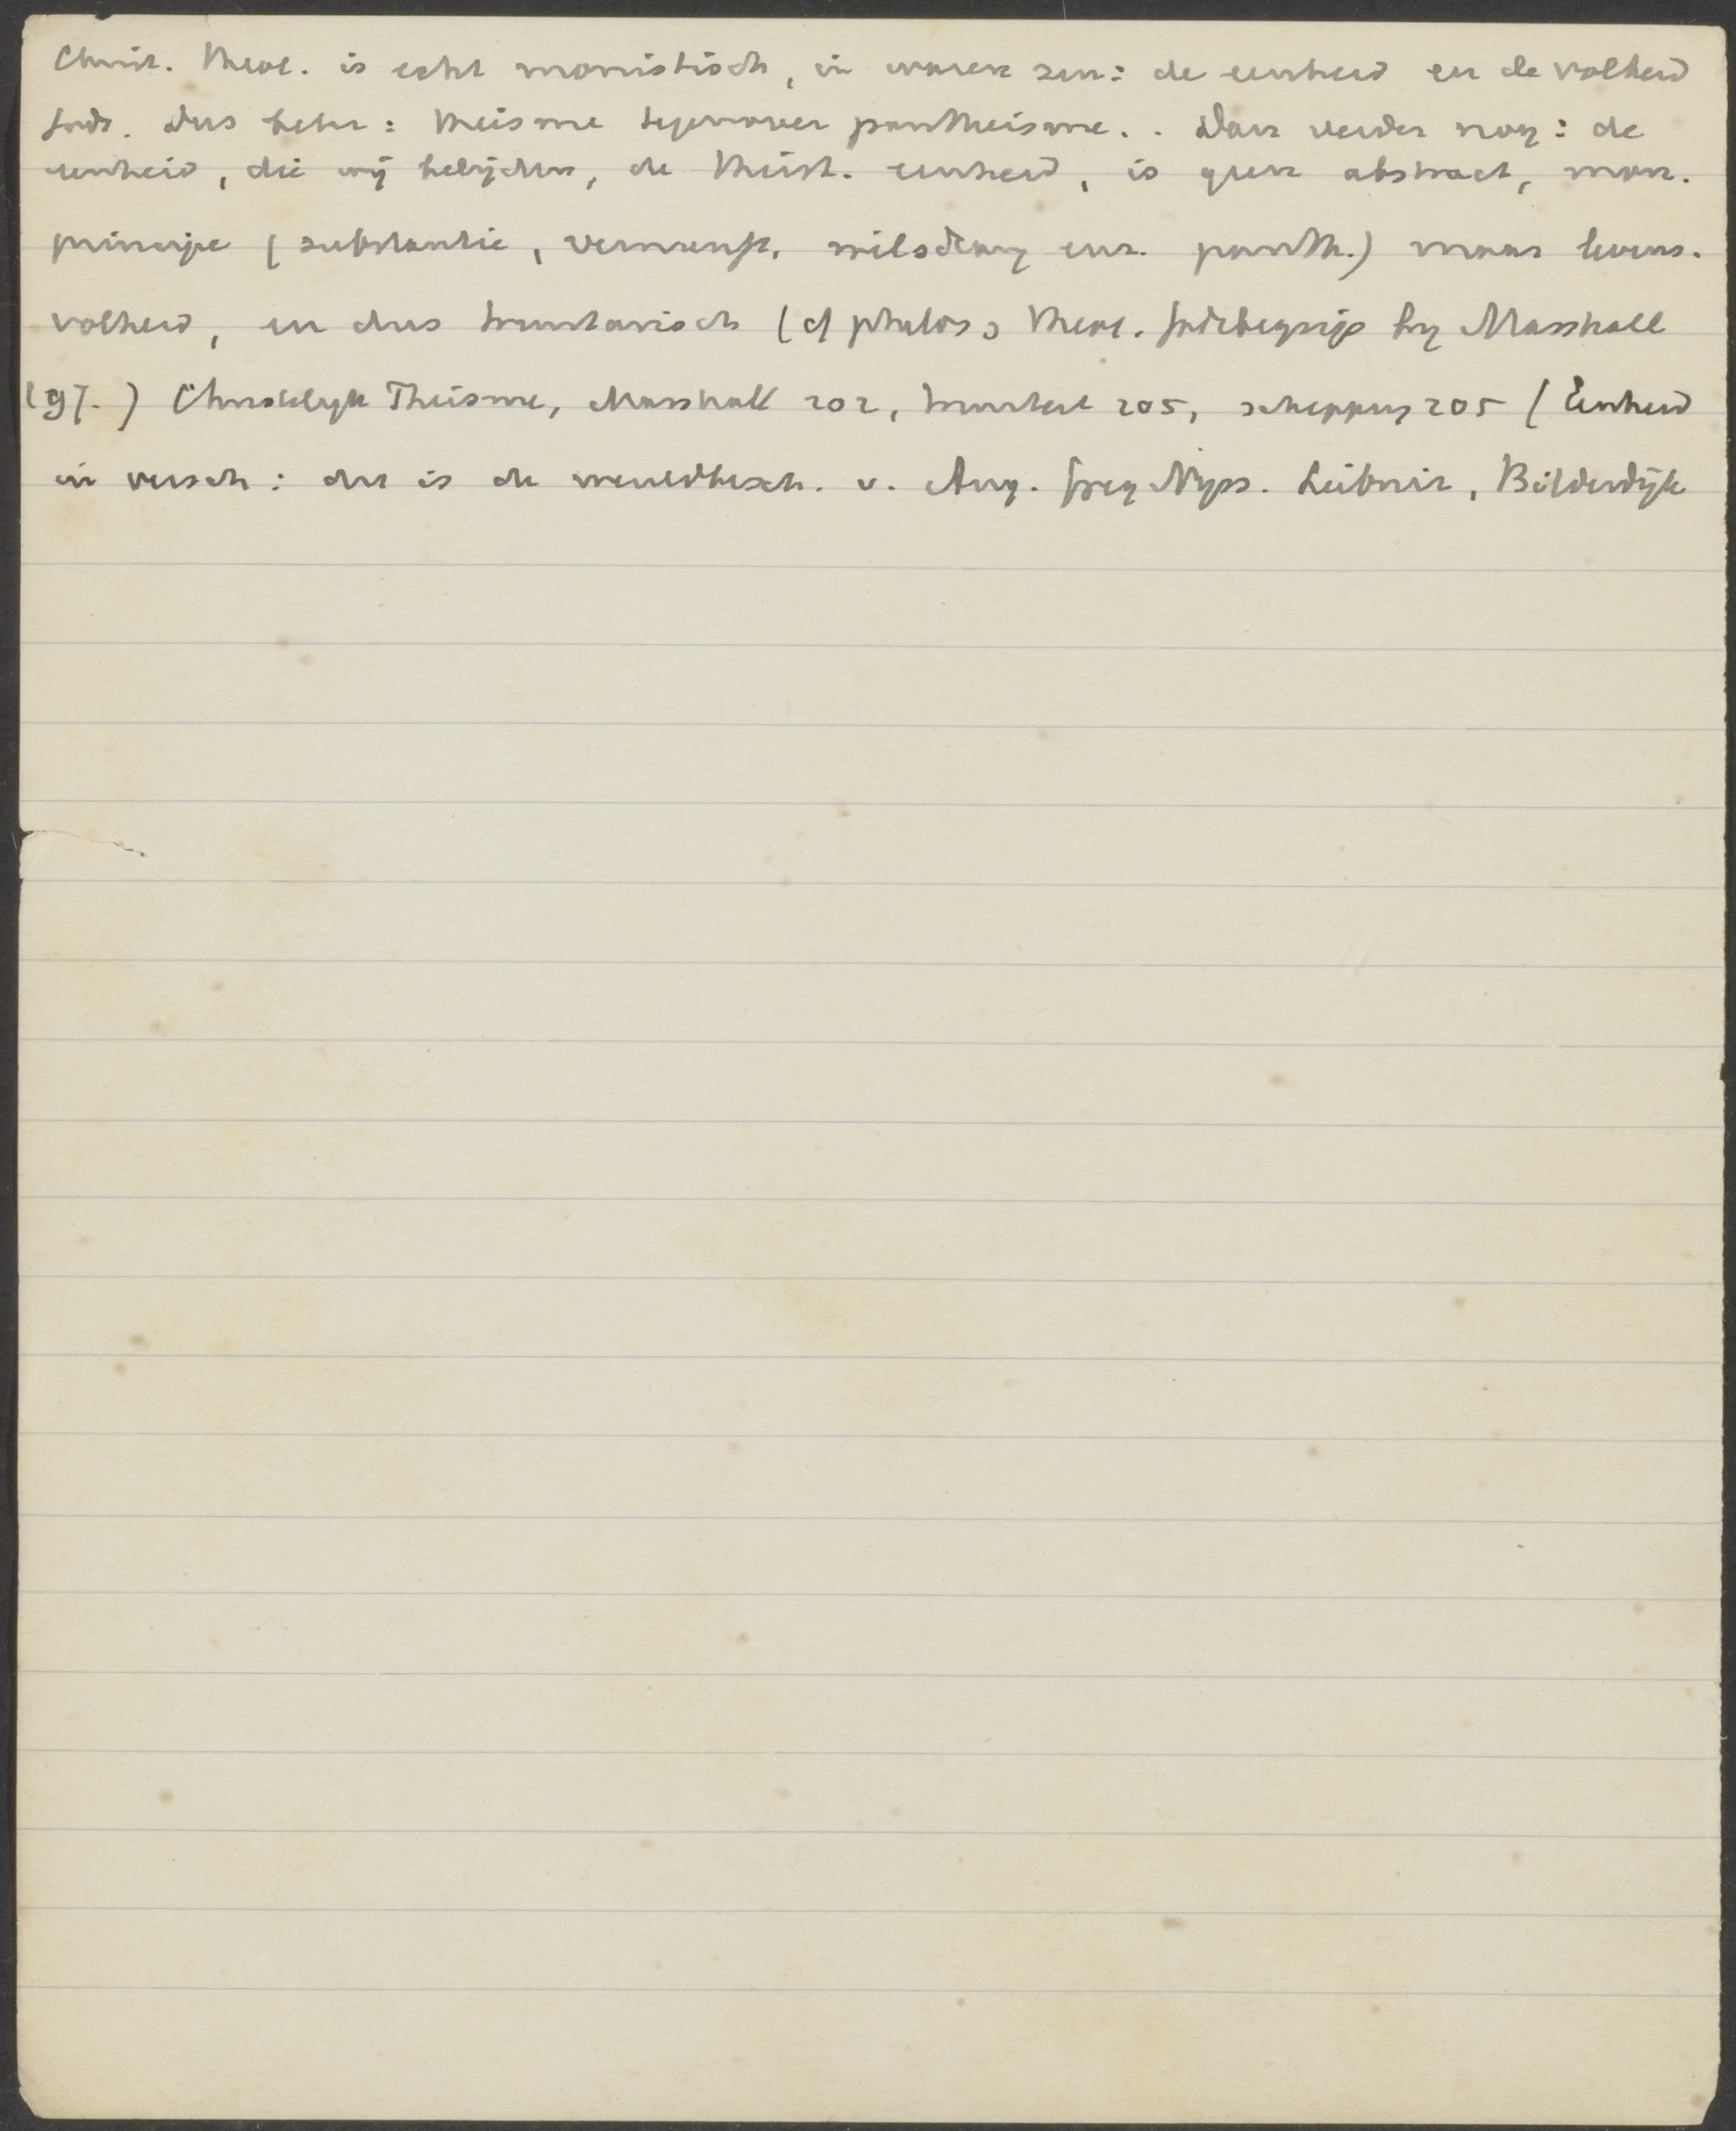 Christ. Theol. is echt monistisch, in waren zin: de eenheid en de volheid
Gods. Dus beter: theisme tegenover pantheisme.. Dan verder nog: de
eenheid, die wij belijden, de theist. eenheid, is geen abstract, mon.
principe (substantie, vernunft, wilsdrang enz. panth.) maar levens-
volheid, en dus trinitarisch (cf philos & theol. godsbegrip by Marshall
197.) Christelyk Theisme, Marshall 202, triniteit 205, schepping 205 (Eenheid
in versch: dit is de wereldbesch. v. Aug. Greg Nyss. Leibniz, Bilderdijk